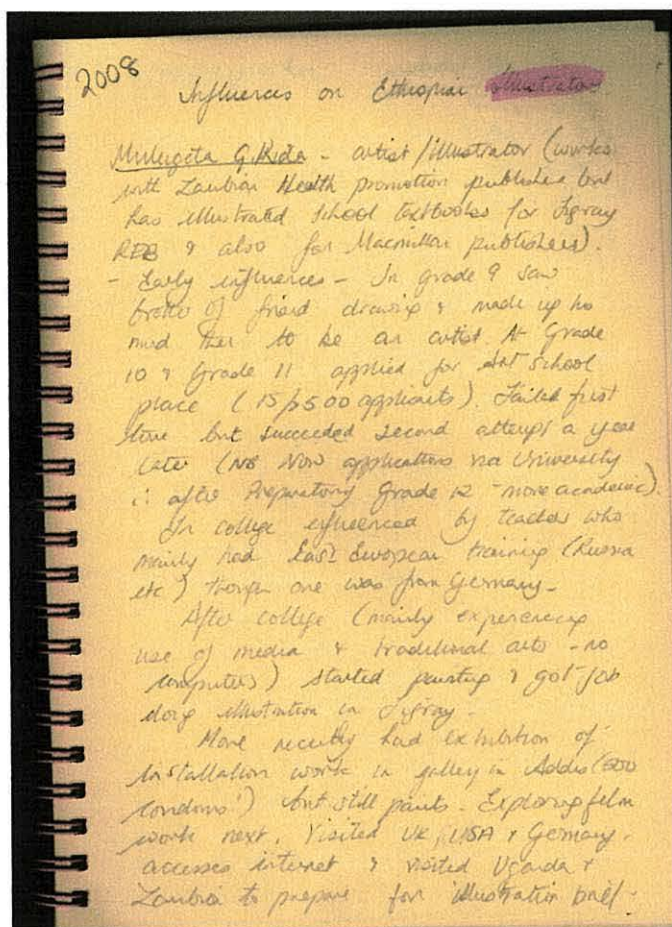 2008
Influences on Ethiopian Illustrators
Mulugeta G.Kida - artist/illustrator (works
with Zambian Health promotion publisher but
has illustrated school textbooks for Tigray
REB & also for Macmillan publishers).
- Early influences - In grade 9 saw
brother of friend drawing & made up his
mind then to be an artist. At Grade
10 & Grade 11 applied for Art School
place (15/2500 applicants). Failed first
time but succeeded second attempt a year
later (NB Now applications via University
∴ after Preparatory Grade 12 - more academic).
In college influenced by teachers who
mainly had East European training (Russia
etc) though one was from Germany.
After college (mainly experiencing
use of media & traditional arts - no
computers) started painting & got job
doing illustration in Tigray.
More recently had exhibition of
installation work in gallery in Addis (
condoms!) but still paints. Exploring film
work next. Visited UK, USA & Germany.
accesses internet & visited Uganda &
Zambia to prepare for illustration brief.